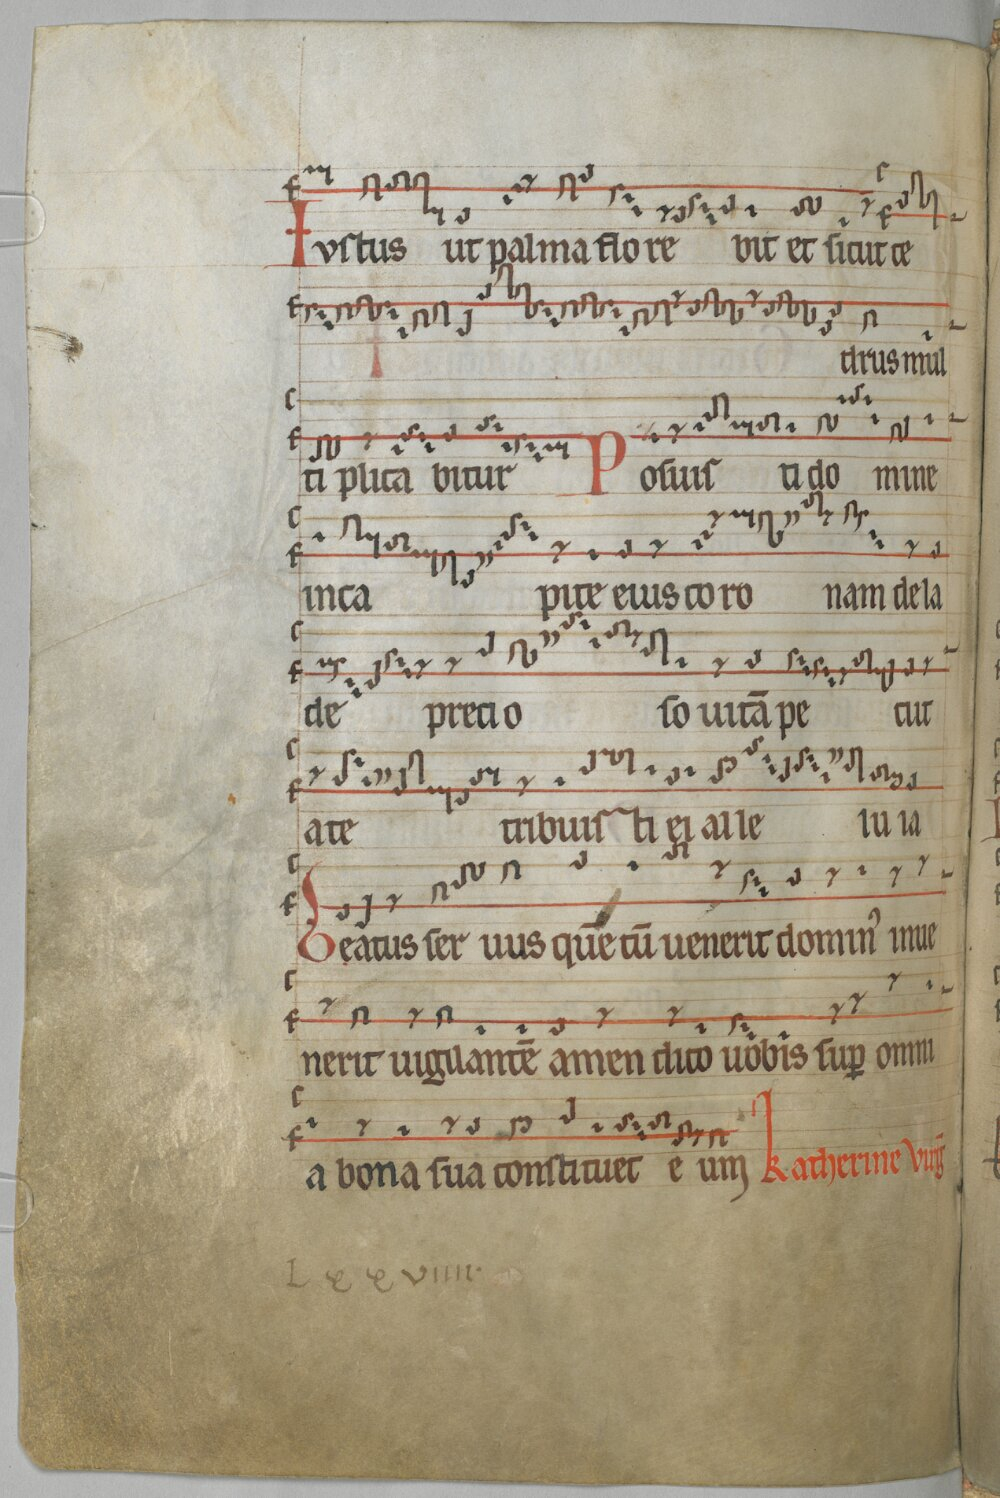 Iustus ut palma flore bit et sicut ce
drus mul
ti plica bitur Posuis ti do mine
in ca pite eius co ro nam de la
de precio so uitā pe tiit
a te tribuis ti ei alle lu ia
Beatus ser uus quē cū uenerit domin' inue
nerit uigilantē amen dico uobis sup omni
a bona sua constituet e um katherine virg
Lxxviiii.